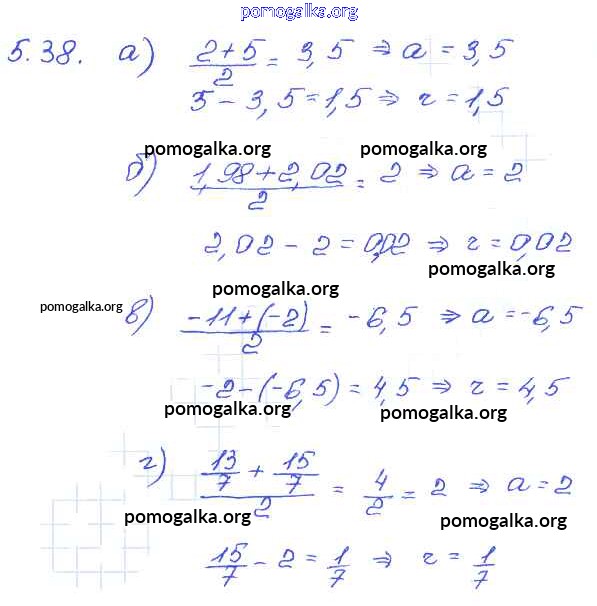 pomogalka.org
5.38. а) (2+5)/2 = 3,5 ⇒ a = 3,5
5 – 3,5 = 1,5 ⇒ r = 1,5
pomogalka.org pomogalka.org
б) (1,98+2,02)/2 = 2 ⇒ a = 2
2,02 – 2 = 0,02 ⇒ r = 0,02
pomogalka.org pomogalka.org
pomogalka.org в) (-11+(-2))/2 = -6,5 ⇒ a = -6,5
-2-(-6,5) = 4,5 ⇒ r = 4,5
pomogalka.org pomogalka.org
г) (13/7 + 15/7)/2 = 4/2 = 2 ⇒ a = 2
pomogalka.org pomogalka.org
15/7 - 2 = 1/7 ⇒ r = 1/7